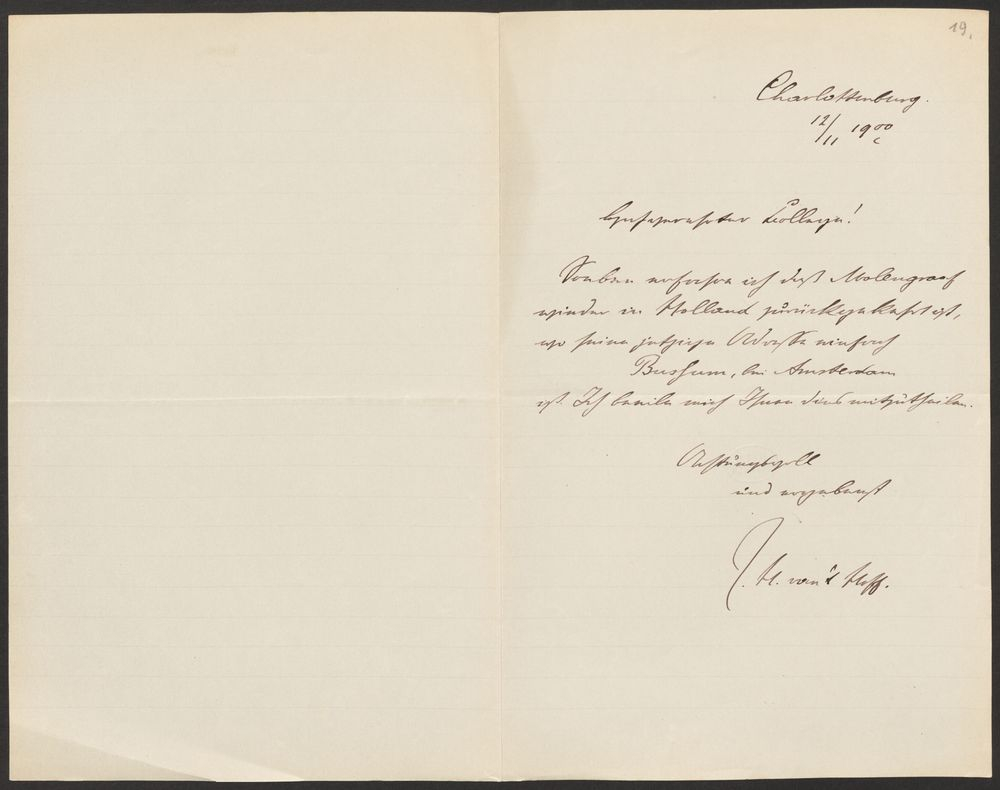 19.
Charlottenburg.
12/11 1900
Hochgeehrter College!
Soeben erfahre ich dass Molengraaf
wieder in Holland zurückgekehrt ist,
wo seine jetzige Adresse einfach
Bussum, bei Amsterdam
ist. Ich beeile mich Ihnen dies mitzutheilen.
Achtungsvoll
und ergebenst
J. H. van't Hoff.